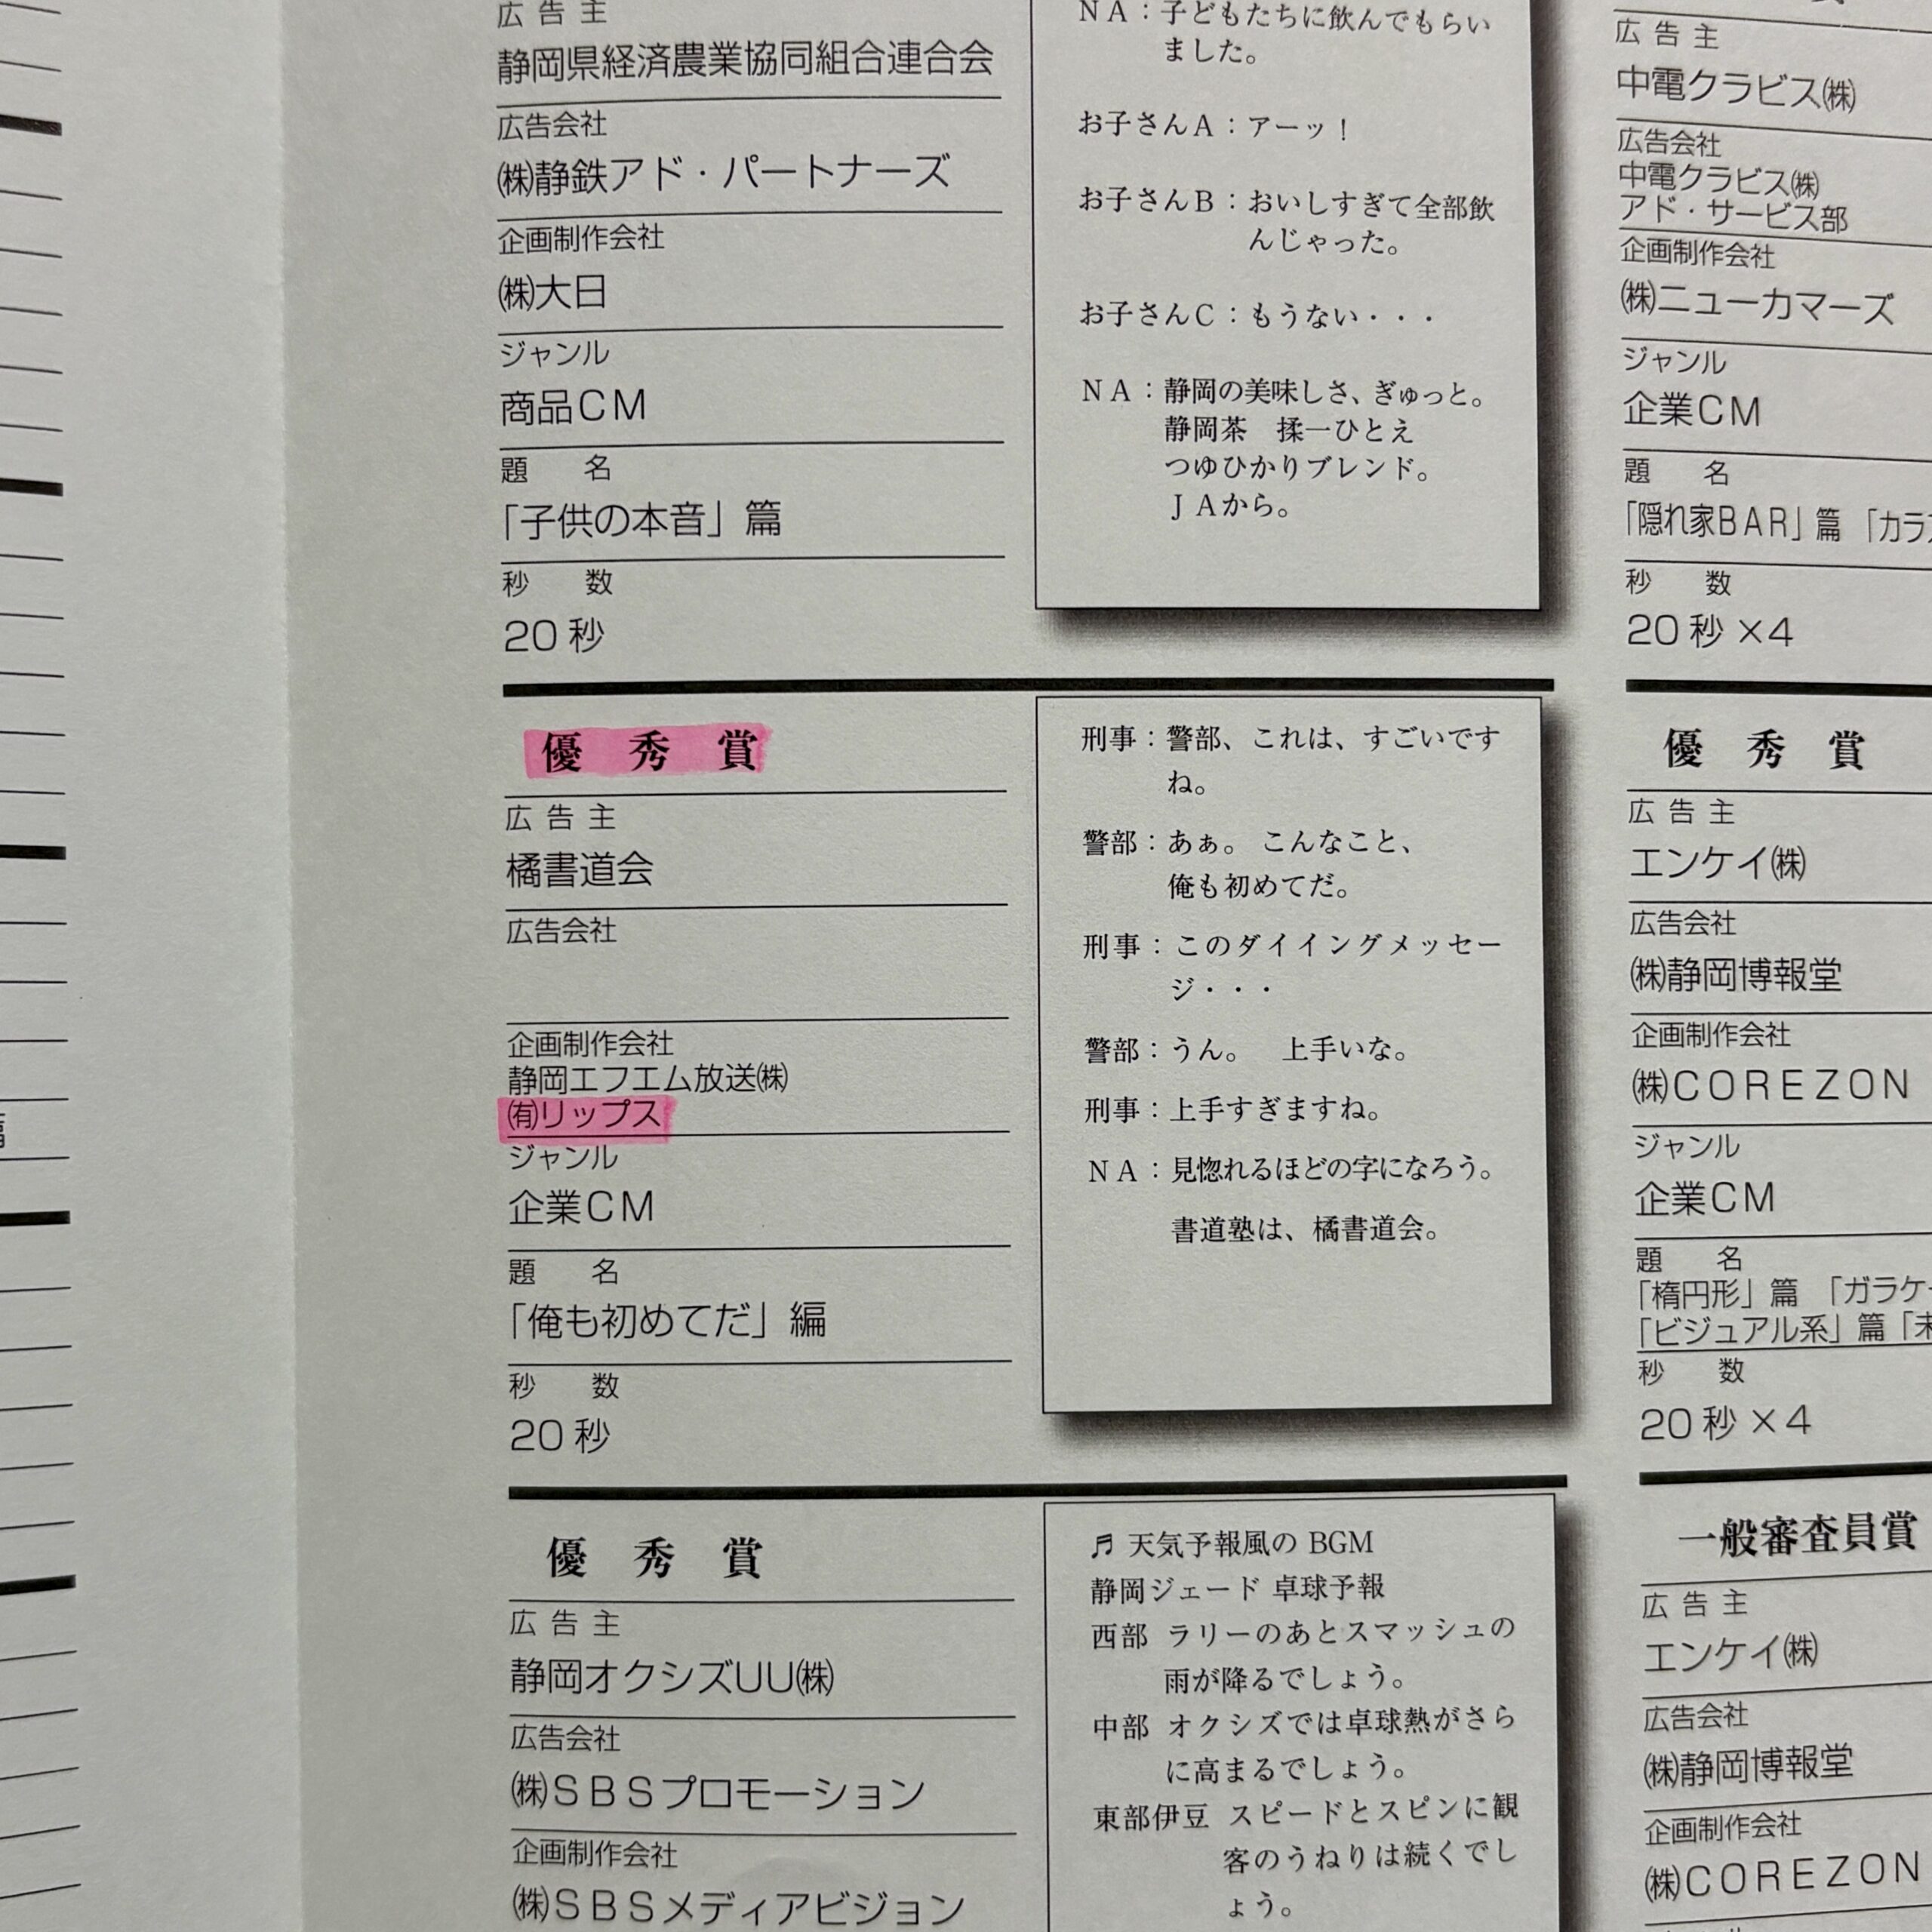 広告主
静岡県経済農業協同組合連合会
広告会社
㈱静鉄アド・パートナーズ
企画制作会社
㈱大日
ジャンル
商品CM
題　名
「子供の本音」篇
秒　数
20秒
NA：子どもたちに飲んでもらい
ました。
お子さんA：アーッ！
お子さんB：おいしすぎて全部飲
んじゃった。
お子さんC：もうない・・・
NA：静岡の美味しさ、ぎゅっと。
静岡茶　揉一ひとえ
つゆひかりブレンド。
JAから。
優秀賞
広告主
橘書道会
広告会社
企画制作会社
静岡エフエム放送㈱
㈲リップス
ジャンル
企業CM
題　名
「俺も初めてだ」編
秒　数
20秒
刑事：警部、これは、すごいです
ね。
警部：あぁ。こんなこと、
俺も初めてだ。
刑事：このダイイングメッセー
ジ・・・
警部：うん。　上手いな。
刑事：上手すぎますね。
NA：見惚れるほどの字になろう。
書道塾は、橘書道会。
優秀賞
広告主
静岡オクシズUU㈱
広告会社
㈱SBSプロモーション
企画制作会社
㈱SBSメディアビジョン
♬ 天気予報風の BGM
静岡ジェード 卓球予報
西部 ラリーのあとスマッシュの
雨が降るでしょう。
中部 オクシズでは卓球熱がさら
に高まるでしょう。
東部伊豆 スピードとスピンに観
客のうねりは続くでし
ょう。
広告主
中電クラビス㈱
広告会社
中電クラビス㈱
アド・サービス部
企画制作会社
㈱ニューカマーズ
ジャンル
企業CM
題　名
「隠れ家BAR」篇「カラ
秒　数
20秒×4
優秀賞
広告主
エンケイ㈱
広告会社
㈱静岡博報堂
企画制作会社
㈱COREZON
ジャンル
企業CM
題　名
「楕円形」篇　「ガラケ
「ビジュアル系」篇「未
秒　数
20秒×4
一般審査員賞
広告主
エンケイ㈱
広告会社
㈱静岡博報堂
企画制作会社
㈱COREZON